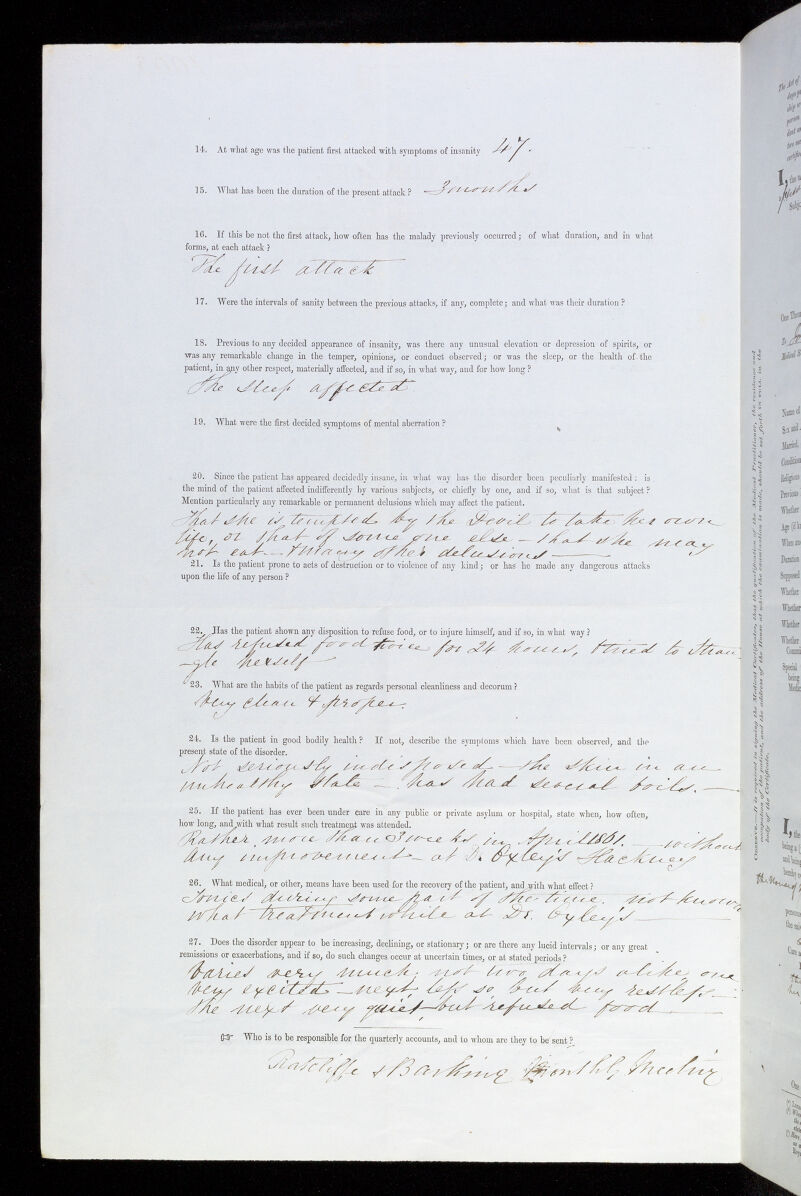 14. At what age was the patient first attacked with symptoms of insanity 47.
15. What has been the duration of the present attack? 3 months
16. If this be not the first attack, how often has the malady previously occurred; of what duration, and in what
forms, at each attack?
The first attack
17. Were the intervals of sanity between the previous attacks, if any, complete; and what was their duration?
18. Previous to any decided appearance of insanity, was there any unusual elevation or depression of spirits, or
was any remarkable change in the temper, opinions, or conduct observed; or was the sleep, or the health of the
patient, in any other respect, materially affected, and if so, in what way, and for how long?
The sleep affected
19. What were the first decided symptoms of mental aberration?
20. Since the patient has appeared decidedly insane, in what way has the disorder been peculiarly manifested: is
the mind of the patient affected indifferently by various subjects, or chiefly by one, and if so, what is that subject?
Mention particularly any remarkable or permanent delusions which may affect the patient.
That she is tempted by the Devil to take her own
life, or that of some one else - that she may
not eat - & many other delusions -
21. Is the patient prone to acts of destruction or to violence of any kind; or has he made any dangerous attacks
upon the life of any person?
22. Has the patient shown any disposition to refuse food, or to injure himself, and if so, in what way?
Has refused food twice for 24 hours, & tried to Stran-
-gle herself
23. What are the habits of the patient as regards personal cleanliness and decorum?
Very clean & proper.
24. Is the patient in good bodily health? If not, describe the symptoms which have been observed, and the
present state of the disorder.
Not seriously indisposed - the skin in an
unhealthy state - has had several boils. -
25. If the patient has ever been under care in any public or private asylum or hospital, state when, how often,
how long, and with what result such treatment was attended.
Rather more than 3 weeks in April 1861. - without
any improvement - at Dr. Oxley's Hackney
26. What medical, or other, means have been used for the recovery of the patient, and with what effect?
Tonics during some part of the time. not known
what treatment while at Dr. Oxley's -
27. Does the disorder appear to be increasing, declining, or stationary; or are there any lucid intervals; or any great
remissions or exacerbations, and if so, do such changes occur at uncertain times, or at stated periods?
Varies very much; not two days alike, one
very excited - next less so, but very restless -
the next very quiet, but refused food -
☞ Who is to be responsible for the quarterly accounts, and to whom are they to be sent?
Ratcliffe & Barking Monthly Meeting